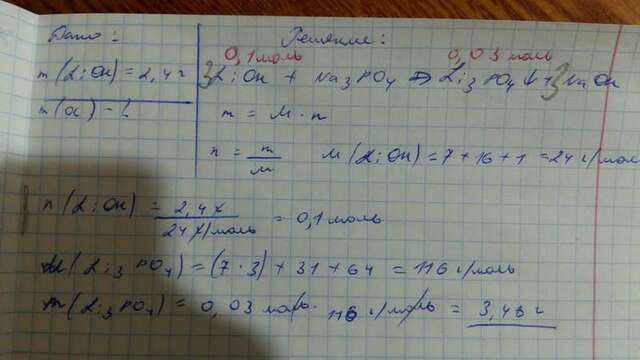 Дано:
Решение:
0,1 моль
0,03 моль
m (LiOH) = 2,4 г
3LiOH + Na3PO4 → Li3PO4↓ + 3NaOH
m(ос) - ?
m = M · n
n = m/M
M (LiOH) = 7 + 16 + 1 = 24 г/моль
n (LiOH) = 2,4 г / 24 г/моль = 0,1 моль
M (Li3PO4) = (7 · 3) + 31 + 64 = 116 г/моль
m (Li3PO4) = 0,03 моль · 116 г/моль = 3,48 г